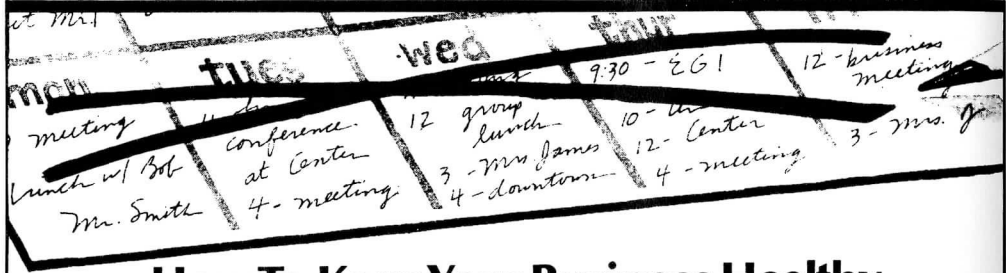 et Mr.
mon tues wed thur
meeting
Lunch w/ Bob
Mr. Smith
conference
at Center
4 - meeting
12 group
lunch
3 - Mrs James
4 - downtown
9:30 - EG!
10 -
12 - Center
4 - meeting
12 - business
meeting
3 - Mrs. J
How To Keep Your Business Healthy